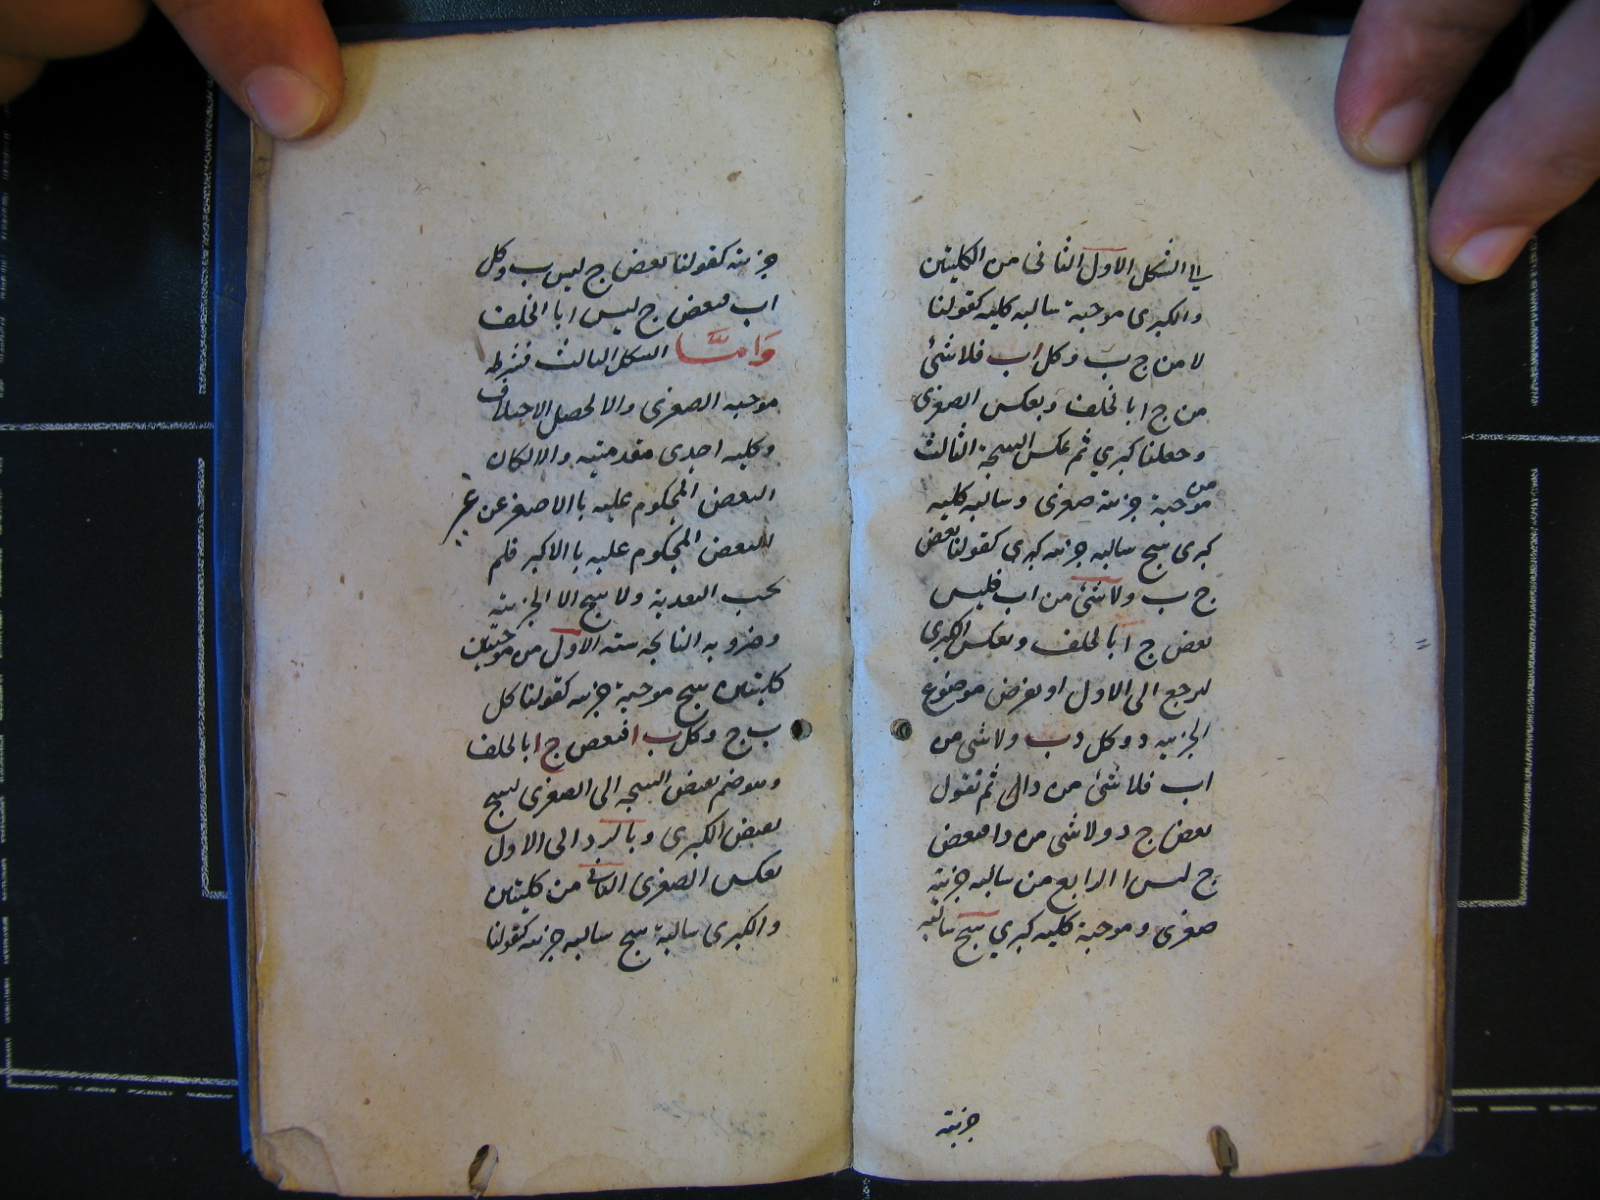 الى الشكل الاول الثانى من الكليتين
والكبرى موجبة سالبه كليه كقولنا
لا من ج ب وكل اب فلا شئ
من ج ا بالخلف وبعكس الصغرى
وجعلنا كبري ثم عكس النتيجة الثالث
من موجبة جزئية صغرى وسالبه كليه
كبرى ينتج سالبه جزئيه كبرى كقولنا بعض
ج ب ولا شئ من اب فليس
بعض ج ا بالخلف وبعكس الكبرى
ليرجع الى الاول او نفرض موضوع
الجزئيه د وكل د ب ولا شى من
اب فلا شئ من دال ثم نقول
بعض ج د ولا شى من دا فبعض
ج ليس ا الرابع من سالبه جزئية
صغرى وموجبة كليه كبري ينتج سالبه
جزئية
جزئيه كقولنا بعض ج ليس ب وكل
اب فبعض ج ليس ا بالخلف
وَامَّا الشكل الثالث فشرطه
موجبه الصغرى والا لحصل الاختلاف
وكليه احدى مقدمتيه والا لكان
البعض المحكوم عليه باالاصغر عن غير
البعض المحكوم عليه باالاكبر فلم
يجب التعدية ولا ينتج الا الجزئية
وضروبه الناتجه سته الاول من موجبتين
كليتين ينتج موجبة جزئيه كقولنا كل
ب ج وكل ب ا فبعض ج ا بالخلف
وهو ضم نقيض النتيجه الى الصغرى لينتج
نقيض الكبرى وبالرد الى الاول
بعكس الصغرى الثانى من كليتين
والكبرى سالبة ينتج سالبه جزئيه كقولنا